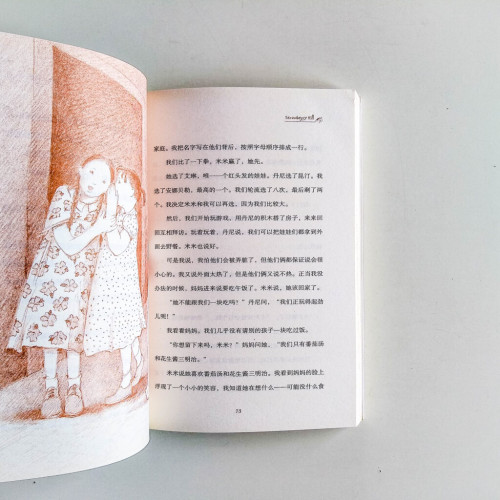 家庭。我把名字写在他们背后，按照字母顺序排成一行。
我们比了一下拳，米米赢了，她先。
她选了艾琳，唯一一个红头发的娃娃。丹尼选了昆汀。我
选了安娜贝勒，最高的一个。我们轮流选了八次，最后剩了两
个。我决定米米和我可以再选，因为我们比较大。
然后，我们开始玩游戏，用丹尼的积木搭了房子，来来回
回互相拜访。玩着玩着，丹尼说，我们可以把娃娃们都拿到外
面去野餐。米米也说好。
可是我说，我怕他们会被弄脏了，但他们俩都保证说会很
小心的。我又说外面太热了，但是他们俩又说不热。正当我没
办法的时候，妈妈进来说要吃午饭了。米米说，她该回家了。
“她不能跟我们一块吃吗？”丹尼问，“我们正玩得起劲
儿呢！”
我看看妈妈。我们几乎没有请别的孩子一块吃过饭。
“你想留下来吗，米米？”妈妈问她，“我们只有番茄汤
和花生酱三明治。”
米米说她喜欢番茄汤和花生酱三明治。我看到妈妈的脸上
浮现了一个小小的笑容，我知道她在想什么——可能没什么食